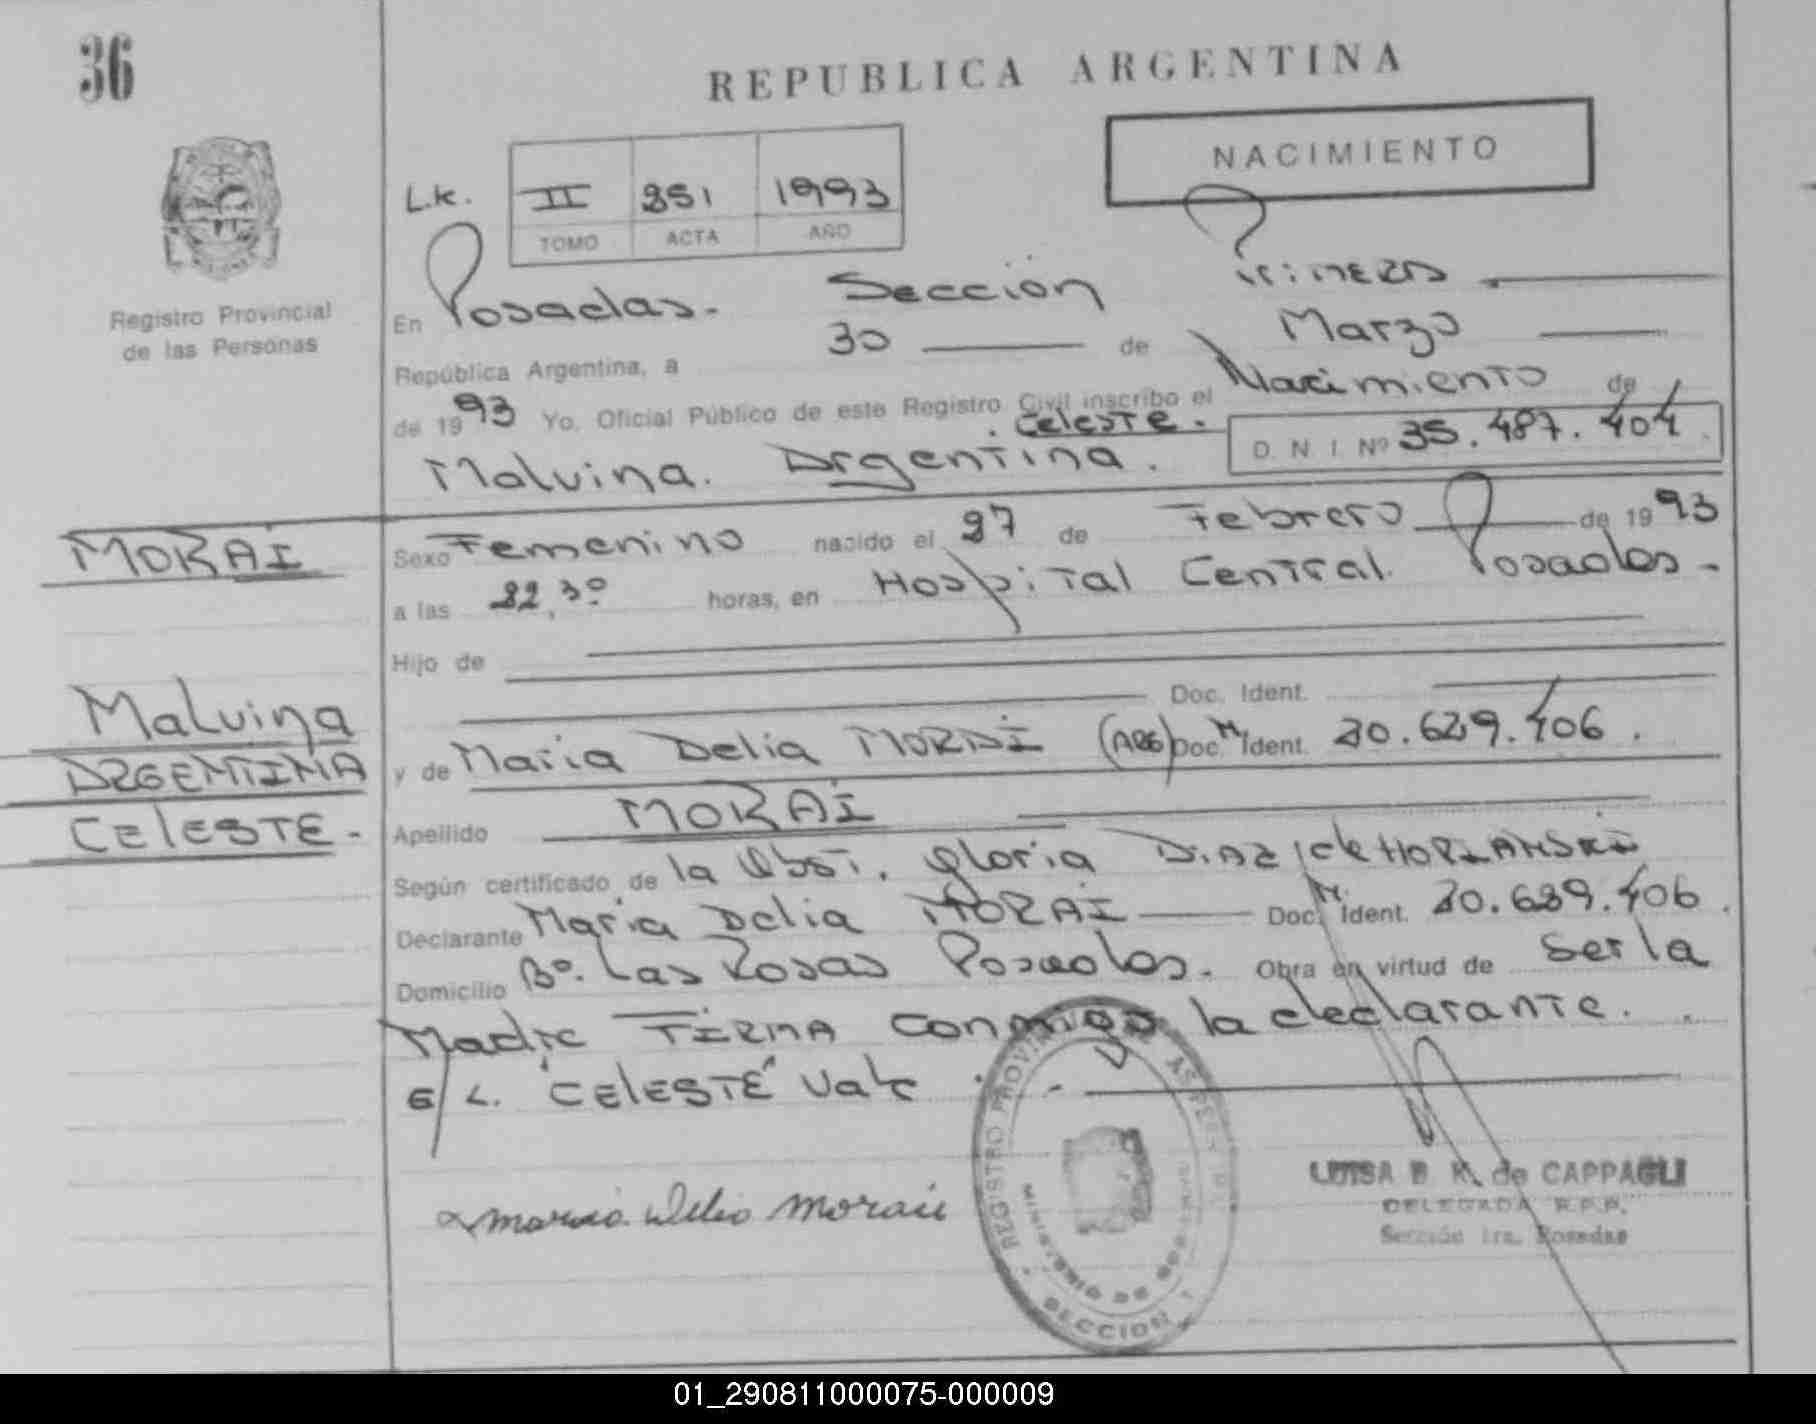 36
REPUBLICA ARGENTINA
NACIMIENTO
L.k. II 251 1993
TOMO ACTA AÑO
Registro Provincial
de las Personas
En Posadas. Sección Primera
República Argentina, a 30 de Marzo
de 1993 Yo, Oficial Público de este Registro Civil inscribo el Nacimiento de
. Celeste.
Malvina. Argentina. D. N. I. Nº 35.487.404.
MORAI
Sexo Femenino nacido el 27 de Febrero de 1993
a las 22,30 horas, en Hospital Central. Posadas.
Hijo de
Doc. Ident.
Malvina
ARGENTINA
CELESTE.
y de Maria Delia MORAI (ARG) Doc. Ident. 20.629.406.
Apellido MORAI
Según certificado de la Obst. Gloria DIAZ de
Declarante Maria Delia MORAI Doc. Ident. 20.629.406.
Domicilio Bº. Las Rosas Posadas. Obra en virtud de Ser la
Madre FIRMA conmigo la declarante.
E/L. "CELESTE" Vale.
Maria Delia Morai
REGISTRO PROVINCIAL DE LAS PERSONAS
MINISTERIO DE GOBIERNO
SECCION 1
LUISA B. K. de CAPPAGLI
DELEGADA R.P.P.
Sección 1ra. Posadas
01_290811000075-000009